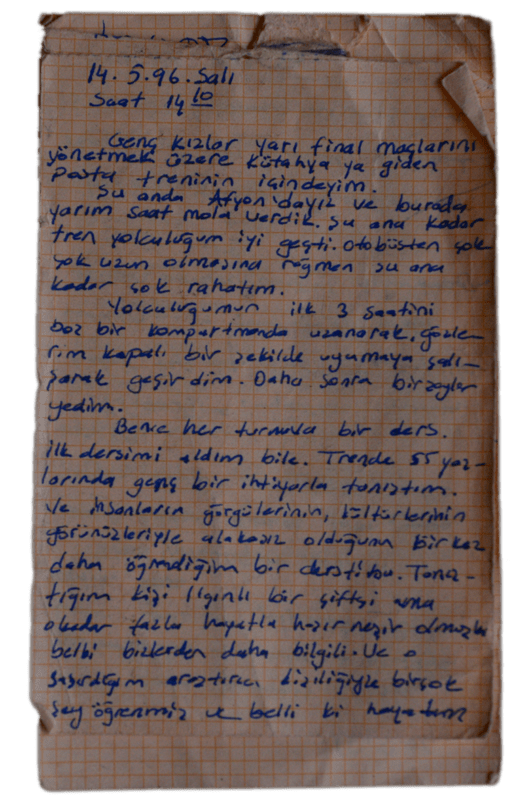 14.5.96.Salı
Saat 14 10
Genç kızlar yarı final maçlarını
yönetmek üzere Kütahya ya giden
Posta treninin içindeyim.
Şu anda Afyon'dayız ve burada
yarım saat mola verdik. Şu ana kadar
tren yolculuğum iyi geçti. Otobüsten çok
çok uzun olmasına rağmen şu ana
kadar çok rahatım.
Yolculuğumun ilk 3 saatini
boş bir kompartmanda uzanarak, gözle-
rim kapalı bir şekilde uyumaya çalı-
şarak geçirdim. Daha sonra birşeyler
yedim.
Bence her turnuva bir ders.
İlk dersimi aldım bile. Trende 55 yaş-
larında genç bir ihtiyarla tanıştım.
Ve insanların görgülerinin, kültürlerinin
görünüşleriyle alakasız olduğunu birkez
daha öğrendiğim bir derstibu. Tanış-
tığım kişi Ilgınlı bir çiftçi ama
okadar fazla hayatla haşır neşir olmuşki
belki bizlerden daha bilgili. Ve o
şaşırdığım araştırıcı kişiliğiyle birçok
şey öğrenmiş ve belli ki